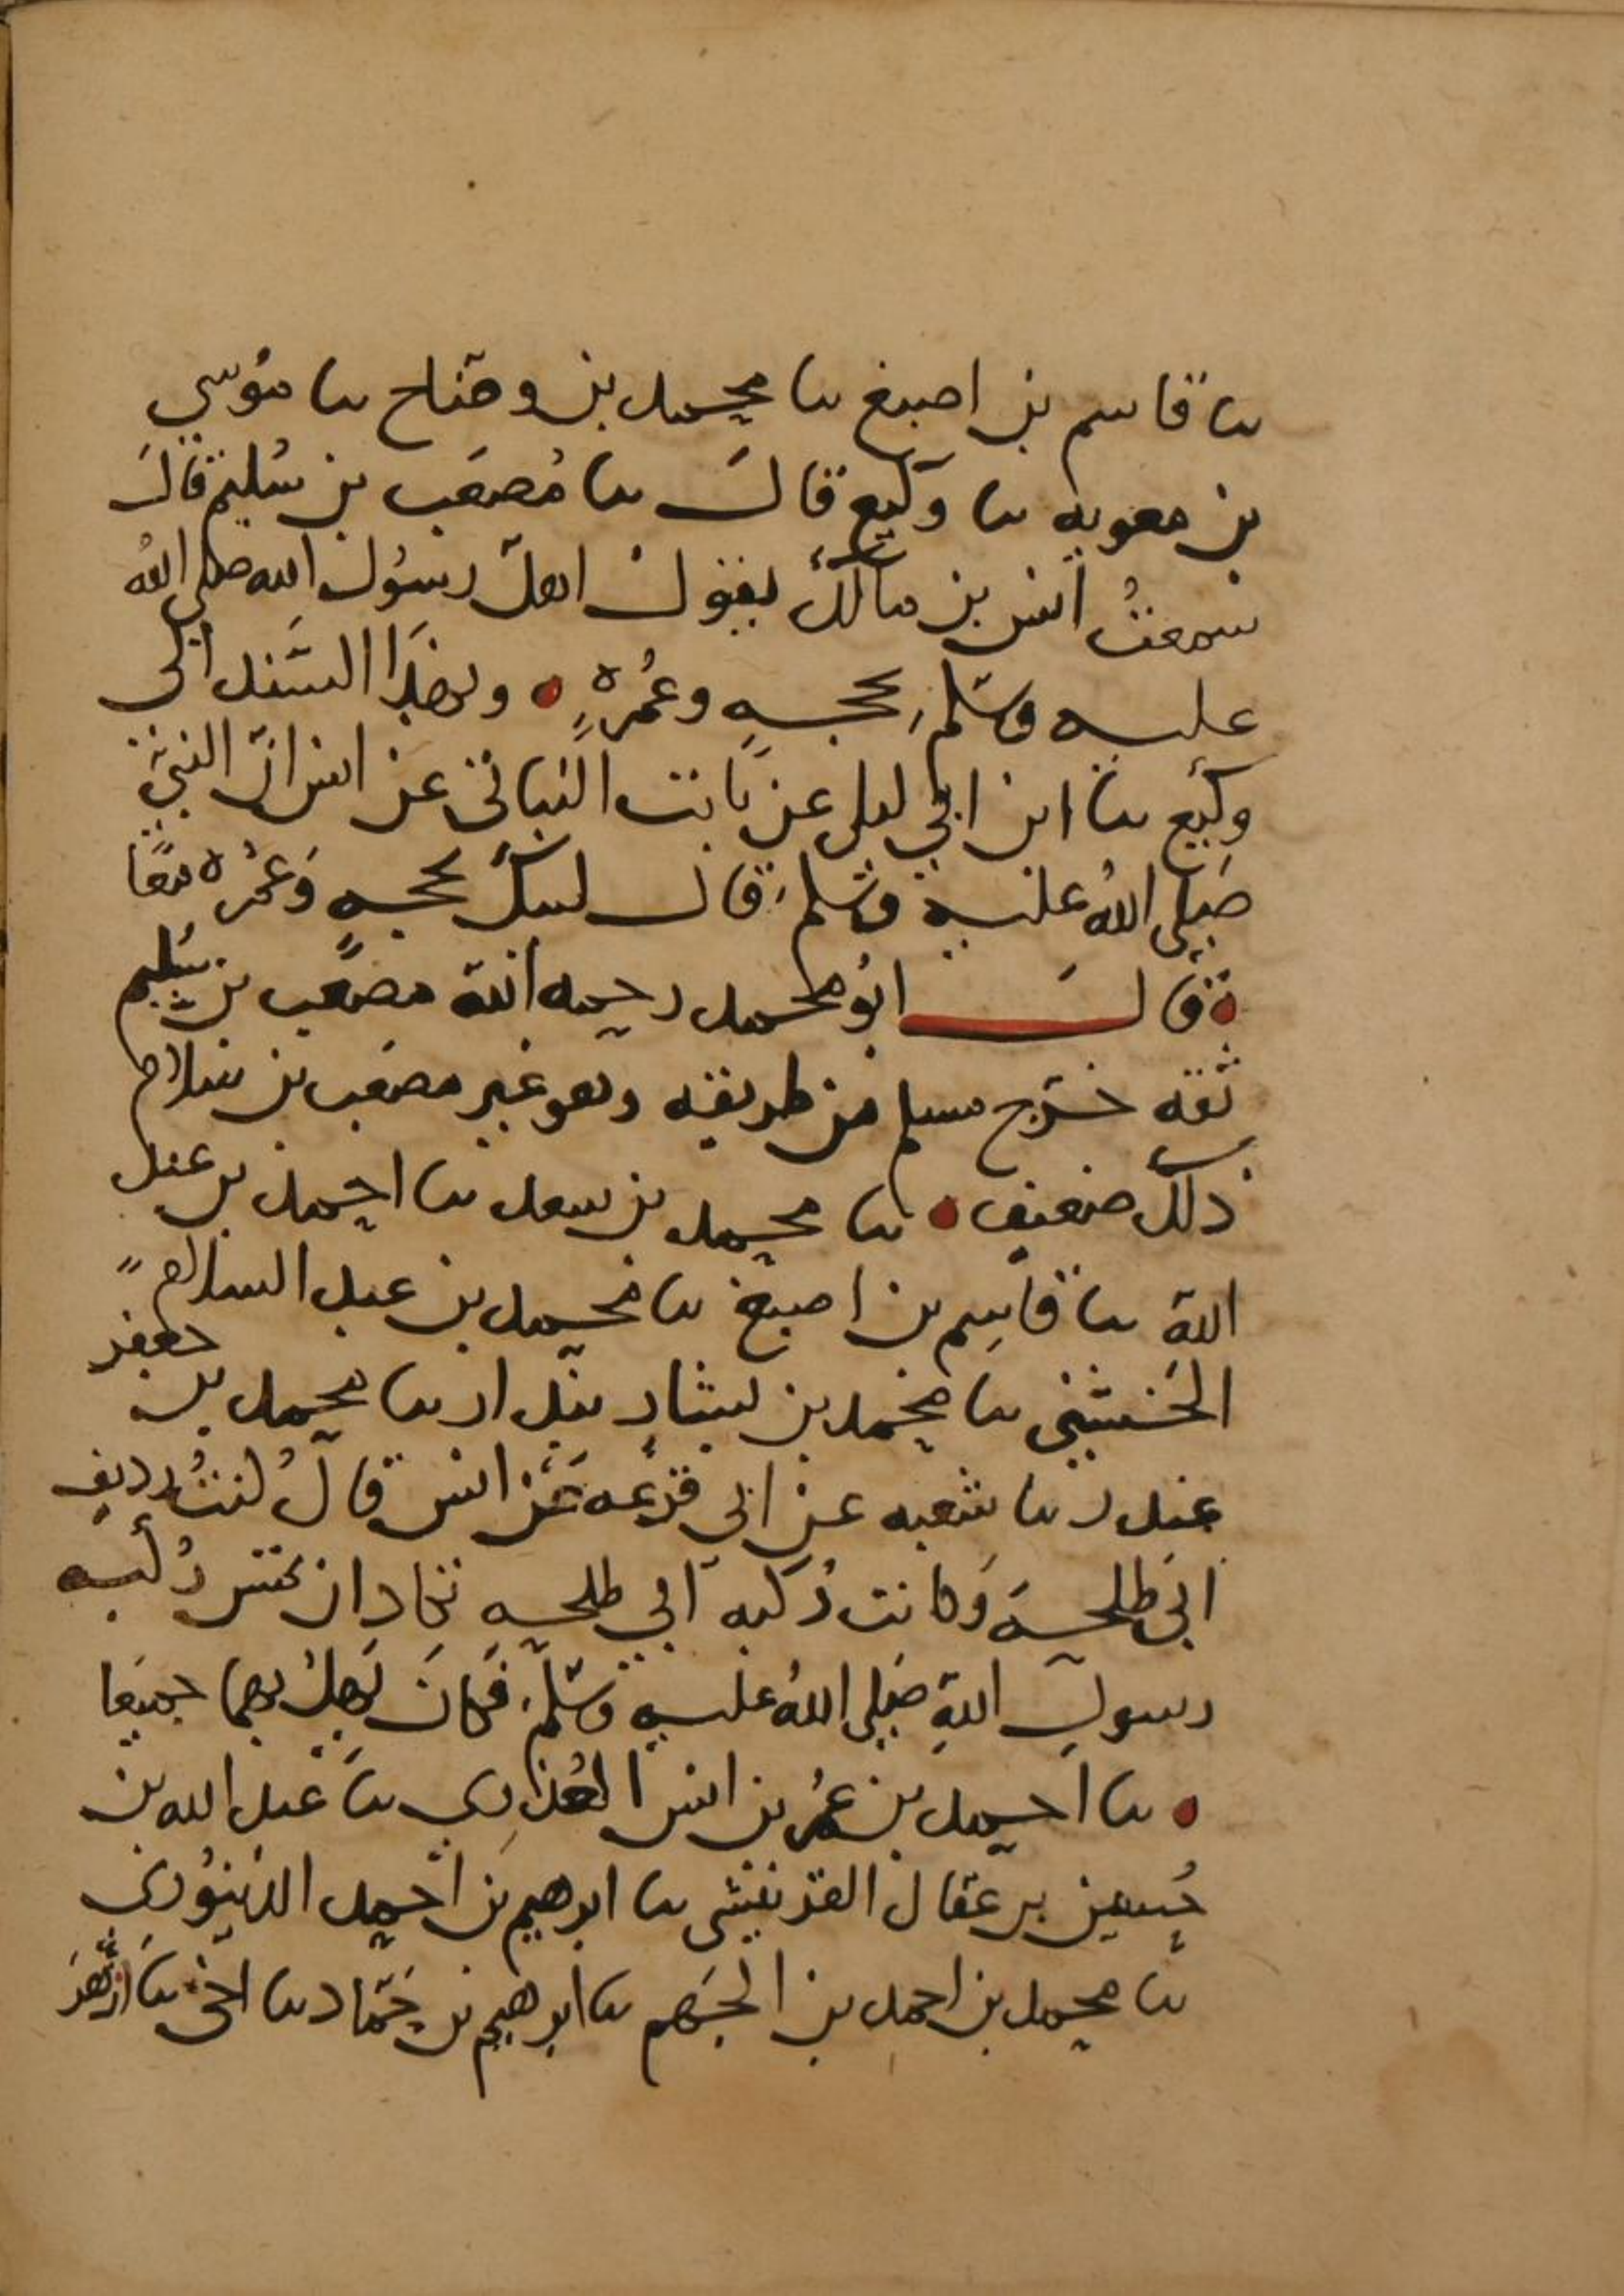 ثنا قاسم بن اصبغ ثنا محمد بن وضاح ثنا موسى
بن معويه ثنا وكيع قال ثنا مُصعَب بن سُليم قال
سمعتُ انس بن مالك يقول اهلّ رسُول الله صلى اللهُ
عليه وسلم بحجهٍ وعُمرهٍ وبهذا السَّند الى
وكيع ثنا ابن ابي ليلى عن ثابت البناني عن انس انّ النبيّ
صَلى اللهُ عليه وسلم قال لبيك بحجه وَعُمره معًا
قال ابُو محمد رحمه الله مصعب بن سُليم
ثقه خرّج مسلم من طريقه وهو غير مصعَب بن سلام
ذلك ضعيف ثنا محمد بن سعد ثنا احمد بن عبد
الله ثنا قاسِم بن اصبغ ثنا محمد بن عبد السلام
الخشني ثنا محمد بن بشارٍ بندار ثنا محمد بن جعفر
غندر ثنا شعبه عن ابي قزعه عَن انس قال كنتُ رديف
ابي طلحهَ وَكانت رُكبه ابي طلحه تكاد ان تمس رُكبه
رسول اللهِ صَلى اللهُ عليه وسلم فكانَ يُهلّ بهما جميعا
ثنا احمد بن عُمر بن انس العُذري ثنا عبد الله بن
حُسين بن عقال القرينشي ثنا ابرهيم بن احمد الدّينوري
ثنا محمد بن احمد بن الجَهم ثنا ابرهيم بن حَمّاد ثنا اخي ثنا ازهَر